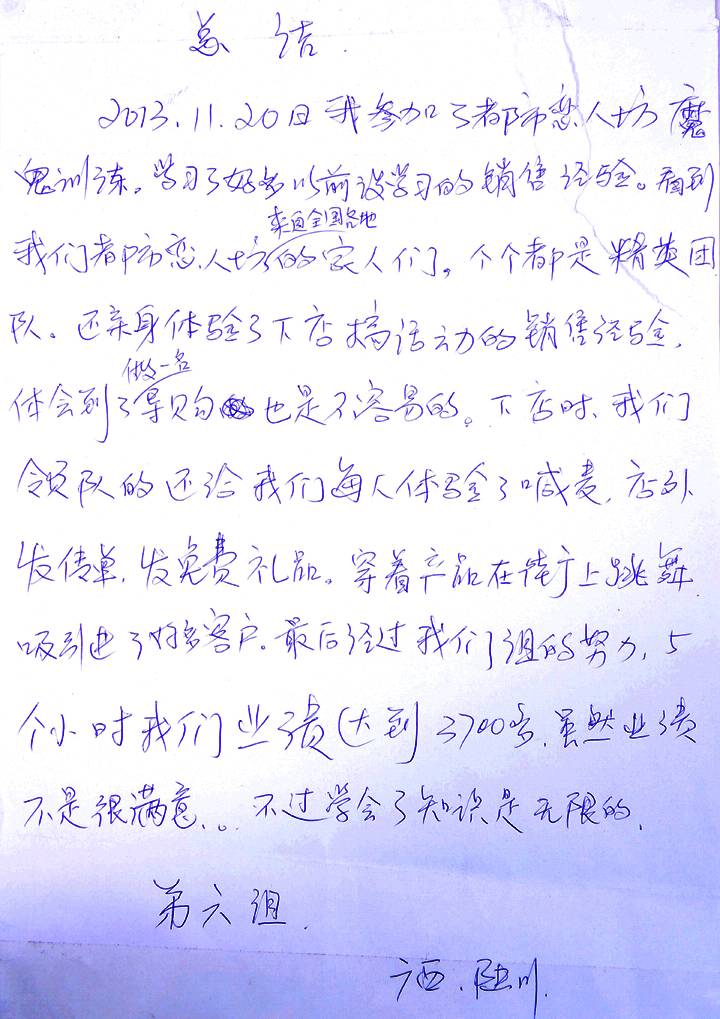 总结.
2013.11.20日我参加了都市恋人坊魔
鬼训练。学习了好多以前没学习的销售经验。看到
来自全国各地
我们都市恋人坊的家人们。个个都是精英团
队。还亲身体验了下店搞活动的销售经验,
做一名
体会到了导购也是不容易的。下店时、我们
领队的还给我们每人体验了喊麦,店外
发传单,发免费礼品。穿着产品在街上跳舞
吸引进了好多客户.最后经过我们组的努力,5
个小时我们业绩达到3700多、虽然业绩
不是很满意、。不过学会了知识是无限的,
第六组.
广西.陆川.